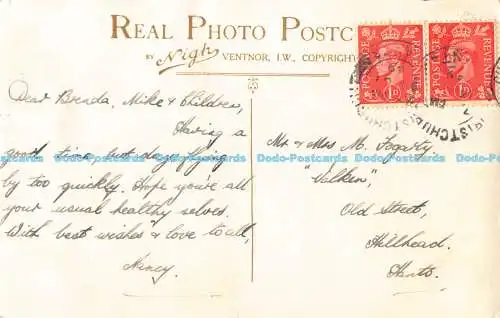 REAL PHOTO POSTC
BY Nigh VENTNOR, I.W. COPYRIGHT
POSTAGE REVENUE 1D
POSTAGE REVENUE 1D
Dear Brenda, Mike & Children,
Having a
good time but days flying
by too quickly. Hope you're all
your usual healthy selves.
With best wishes & love to all,
Nancy.
Mr & Mrs M. Fogarty
"Welken",
Old Street,
Hillhead.
Hants.
Dodo-Postcards Dodo-Postcards Dodo-Postcards Dodo-Postcards